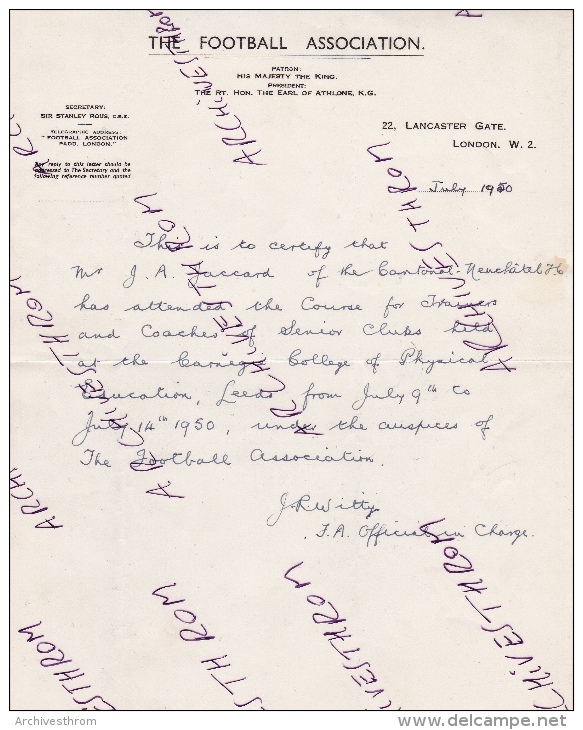 THE FOOTBALL ASSOCIATION.
PATRON:
HIS MAJESTY THE KING.
PRESIDENT:
THE RT. HON. THE EARL OF ATHLONE, K.G.
SECRETARY:
SIR STANLEY ROUS, C.B.E.
TELEGRAPHIC ADDRESS:
"FOOTBALL ASSOCIATION
PADD, LONDON."
Any reply to this letter should be
addressed to The Secretary and the
following reference number quoted
22, LANCASTER GATE.
LONDON. W. 2.
July 1950
This is to certify that
Mr J. A. Jaccard of the Cantonal-Neuchâtel F.C.
has attended the Course for Trainers
and Coaches of Senior Clubs held
at the Carnegie College of Physical
Education, Leeds from July 9th to
July 14th 1950, under the auspices of
The Football Association.
J.R. Witty
F.A. Official in Charge.
ARCHIVESTHROM
ARCHIVESTHROM
ARCHIVESTHROM
ARCHIVESTHROM
Archivesthrom
www.delcampe.net